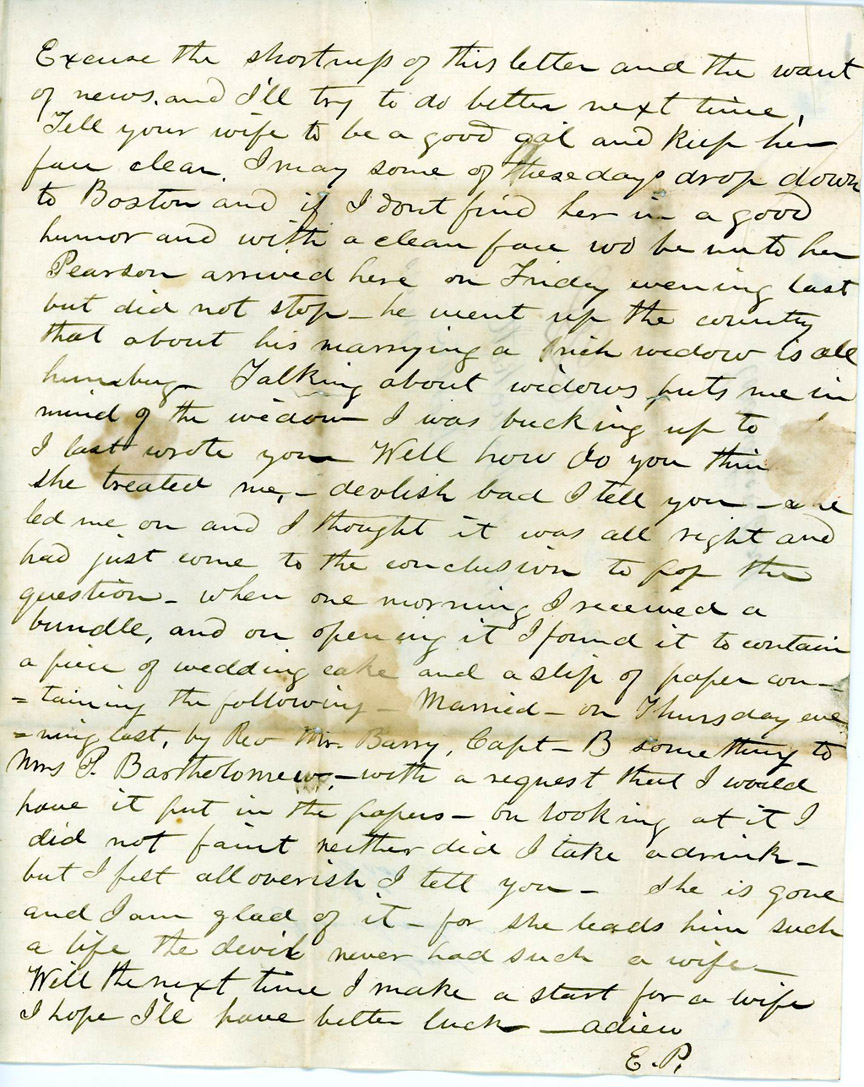 Excuse the shortness of this letter and the want
of news, and I'll try to do better next time,
Tell your wife to be a good gal and keep her
face clean. I may some of these days drop down
to Boston and if I dont find her in a good
humor and with a clean face wo be unto her
Pearson arrived here on Friday evening last
but did not stop – he went up the country
that about his marrying a rich widow is all
humbug – Talking about widows puts me in
mind of the widow I was bucking up to
I last wrote you Well how do you think
she treated me, – devlish bad I tell you – she
led me on and I thought it was all right and
had just come to the conclusion to pop the
question – when one morning I received a
bundle, and on opening it I found it to contain
a piece of wedding cake and a slip of paper con–
=taining the following – Married – on Thursday eve
=ning last, by Rev Mr. Barry, Capt – B something to
Mrs P. Bartholomew – with a request that I would
have it put in the papers – on looking at it I
did not faint neither did I take a drink –
but I felt all overish I tell you – she is gone
and I am glad of it – for she leads him such
a life the devil never had such a wife –
Well the next time I make a start for a wife
I hope I'll have better luck – adieu
E. P.